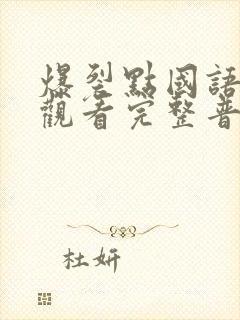 爆裂點國語
觀看完整普
杜妍